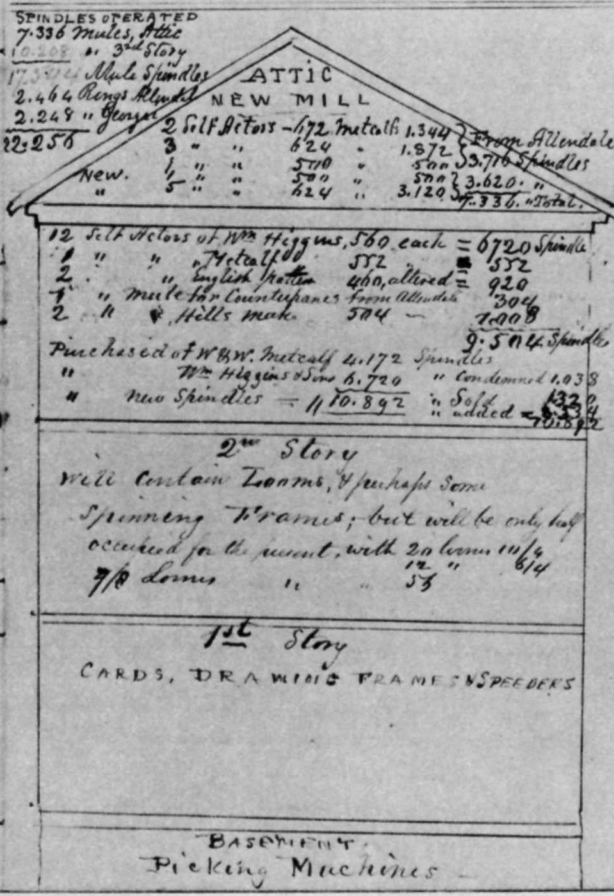 SPINDLES OPERATED
7.336 Mules, Attic
10.208 " 3rd Story
Mule Spindles
2.464 Rings Allendale
2.248 " Georgia
22.256
ATTIC
NEW MILL
2 Self Actors - 672 Metcalfs 1.344
3 " " 624 " 1.872
1 " " 500 " 500
New. 1 " " 500 " 500
" 5 " " 624 " 3.120
From Allendale
3.716 Spindles
3.620. "
7.336. " Total.
12 Self Actors of Wm Higgins, 560 each = 6720 Spindle
1 " " Metcalf 552 = 552
2 " English pattern 460, altered = 920
1 " Mule for Counterpanes from Allendale 304
2 " " Hills make 504 - 1.008
9.504 Spindles
Purchased of W & W. Metcalf 4.172 Spindles
" Wm Higgins & Sons 6.720 " Condemned 1.038
" New Spindles = 10.892 " Sold 1320
" added =
10.892
2nd Story
Will Contain Looms, & perhaps some
Spinning Frames; but will be only half
occupied for the present, with 20 looms 10/4
12 " 6/4
7/8 Looms " " 56
1st Story
CARDS, DRAWING FRAMES & SPEEDERS
BASEMENT.
Picking Machines